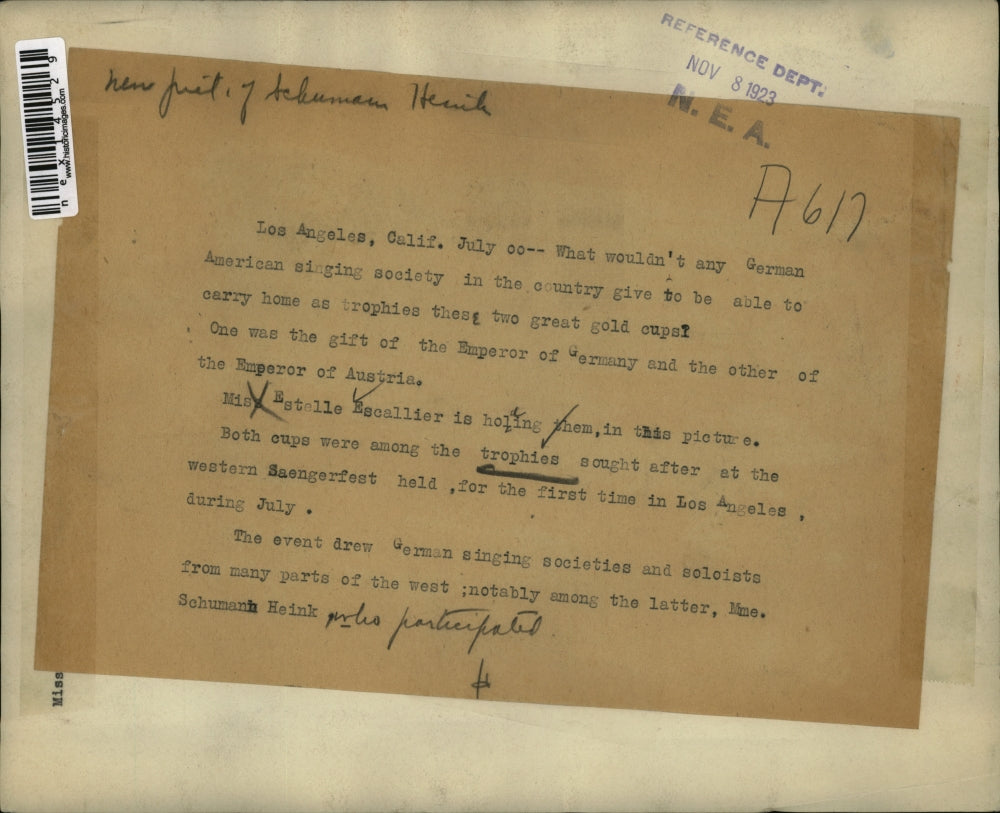 REFERENCE DEPT.
NOV 8 1923
N. E. A.
new pict. of Schumann Heink
A617
nex1 14529
www.historicimages.com
Los Angeles, Calif. July oo-- What wouldn't any German
American singing society in the country give to be able to
carry home as trophies these two great gold cups?
One was the gift of the Emperor of Germany and the other of
the Emperor of Austria.
Miss Estelle Escallier is holding them, in this picture.
Both cups were among the trophies sought after at the
western Saengerfest held ,for the first time in Los Angeles ,
during July .
The event drew German singing societies and soloists
from many parts of the west ;notably among the latter, Mme.
Schumann Heink who participated
Miss